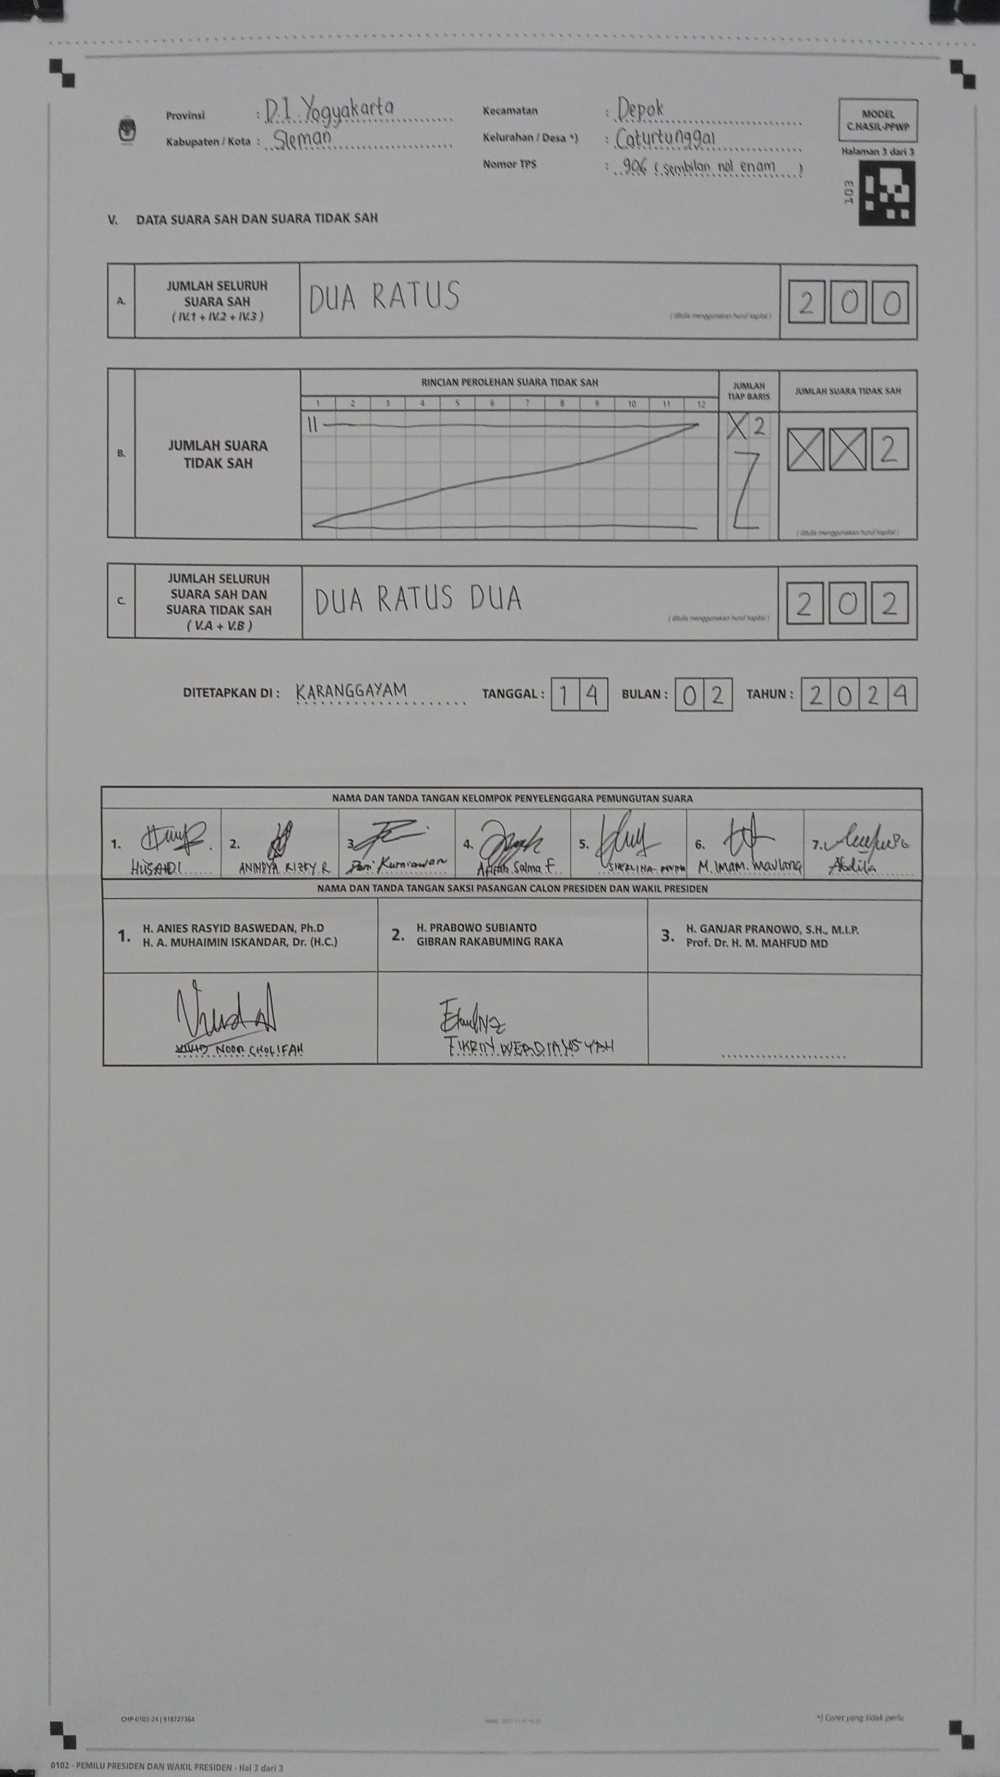 Provinsi : D.I. Yogyakarta
Kabupaten / Kota : Sleman
Kecamatan : Depok
Kelurahan / Desa *) : Caturtunggal
Nomor TPS : 906 (sembilan nol enam)
MODEL
C.HASIL-PPWP
Halaman 3 dari 3
103
V. DATA SUARA SAH DAN SUARA TIDAK SAH
A. JUMLAH SELURUH SUARA SAH ( IV.1 + IV.2 + IV.3 ) DUA RATUS 2 0 0
( ditulis menggunakan huruf kapital )
RINCIAN PEROLEHAN SUARA TIDAK SAH JUMLAH TIAP BARIS JUMLAH SUARA TIDAK SAH
1 2 3 4 5 6 7 8 9 10 11 12
B. JUMLAH SUARA TIDAK SAH II X 2 X X 2
( ditulis menggunakan huruf kapital )
C. JUMLAH SELURUH SUARA SAH DAN SUARA TIDAK SAH ( V.A + V.B ) DUA RATUS DUA 2 0 2
( ditulis menggunakan huruf kapital )
DITETAPKAN DI : KARANGGAYAM TANGGAL : 1 4 BULAN : 0 2 TAHUN : 2 0 2 4
NAMA DAN TANDA TANGAN KELOMPOK PENYELENGGARA PEMUNGUTAN SUARA
1. 2. 3. 4. 5. 6. 7.
HUSANDI ANINDYA RIZKY R. Kurniawan Afifah Salma F. SHERLINA M. Imam Maulana Abdila
NAMA DAN TANDA TANGAN SAKSI PASANGAN CALON PRESIDEN DAN WAKIL PRESIDEN
1. H. ANIES RASYID BASWEDAN, Ph.D
H. A. MUHAIMIN ISKANDAR, Dr. (H.C.)
2. H. PRABOWO SUBIANTO
GIBRAN RAKABUMING RAKA
3. H. GANJAR PRANOWO, S.H., M.I.P.
Prof. Dr. H. M. MAHFUD MD
NOOR CHOLIFAH
FIKRIN WERDIANSYAH
CHP-0102-24 | 918727364
*) Coret yang tidak perlu
0102 - PEMILU PRESIDEN DAN WAKIL PRESIDEN - Hal 3 dari 3